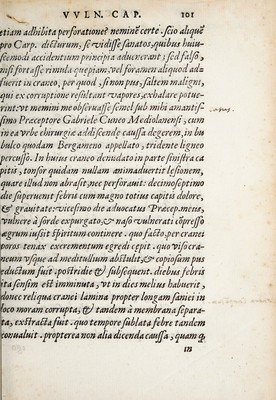 VVLN. CAP. 101
etiam adhibita perforatione nemini certe. scio aliquē
pro Carp. dicturum, se vidisse sanatos, quibus huius
scemodi accidentium principia aduenerant; sed falso,
nisi fortasse rimula quępiam, vel foramen aliquod adfuerit
in craneo, per quod, si non pus, saltem maligni,
qui ex corruptione resultant vapores, exhalare potuerint:
vt memini me obseruasse semel sub mihi amantissimo
Præceptore Gabriele Cuneo Mediolanensi, cum
in ea vrbe chirurgię addiscendę caussa degerem, in bubulco
quodam Bergameno appellato, tridente ligneo
percusso. In huius craneo denudato in parte sinistra capitis,
tonsor quidam nullam animaduertit lęsionem,
quare illud non abrasit, nec perforauit: decimoseptimo
die superuenit febris cum magno totius capitis dolore,
& grauitate: vicesimo die aduocatus Præcep. meus,
vulnere à sorde expurgato, & naso vulnerati cōpresso
ægrum iussit spiritum continere. quo facto, per cranei
poros tenax excrementum egredi cepit. quo viso craneum
vsque ad meditullium abstulit, & copiosum pus
eductum fuit. postridie & subsequent. diebus febris
ita sensim est imminuta, vt in dies melius habuerit,
donec reliqua cranei lamina propter longam saniei in
loco moram corrupta, & tandem à membrana separata,
exstracta fuit. quo tempore sublata febre tandem
conualuit. propterea non alia dicenda caussa, quamq́
in